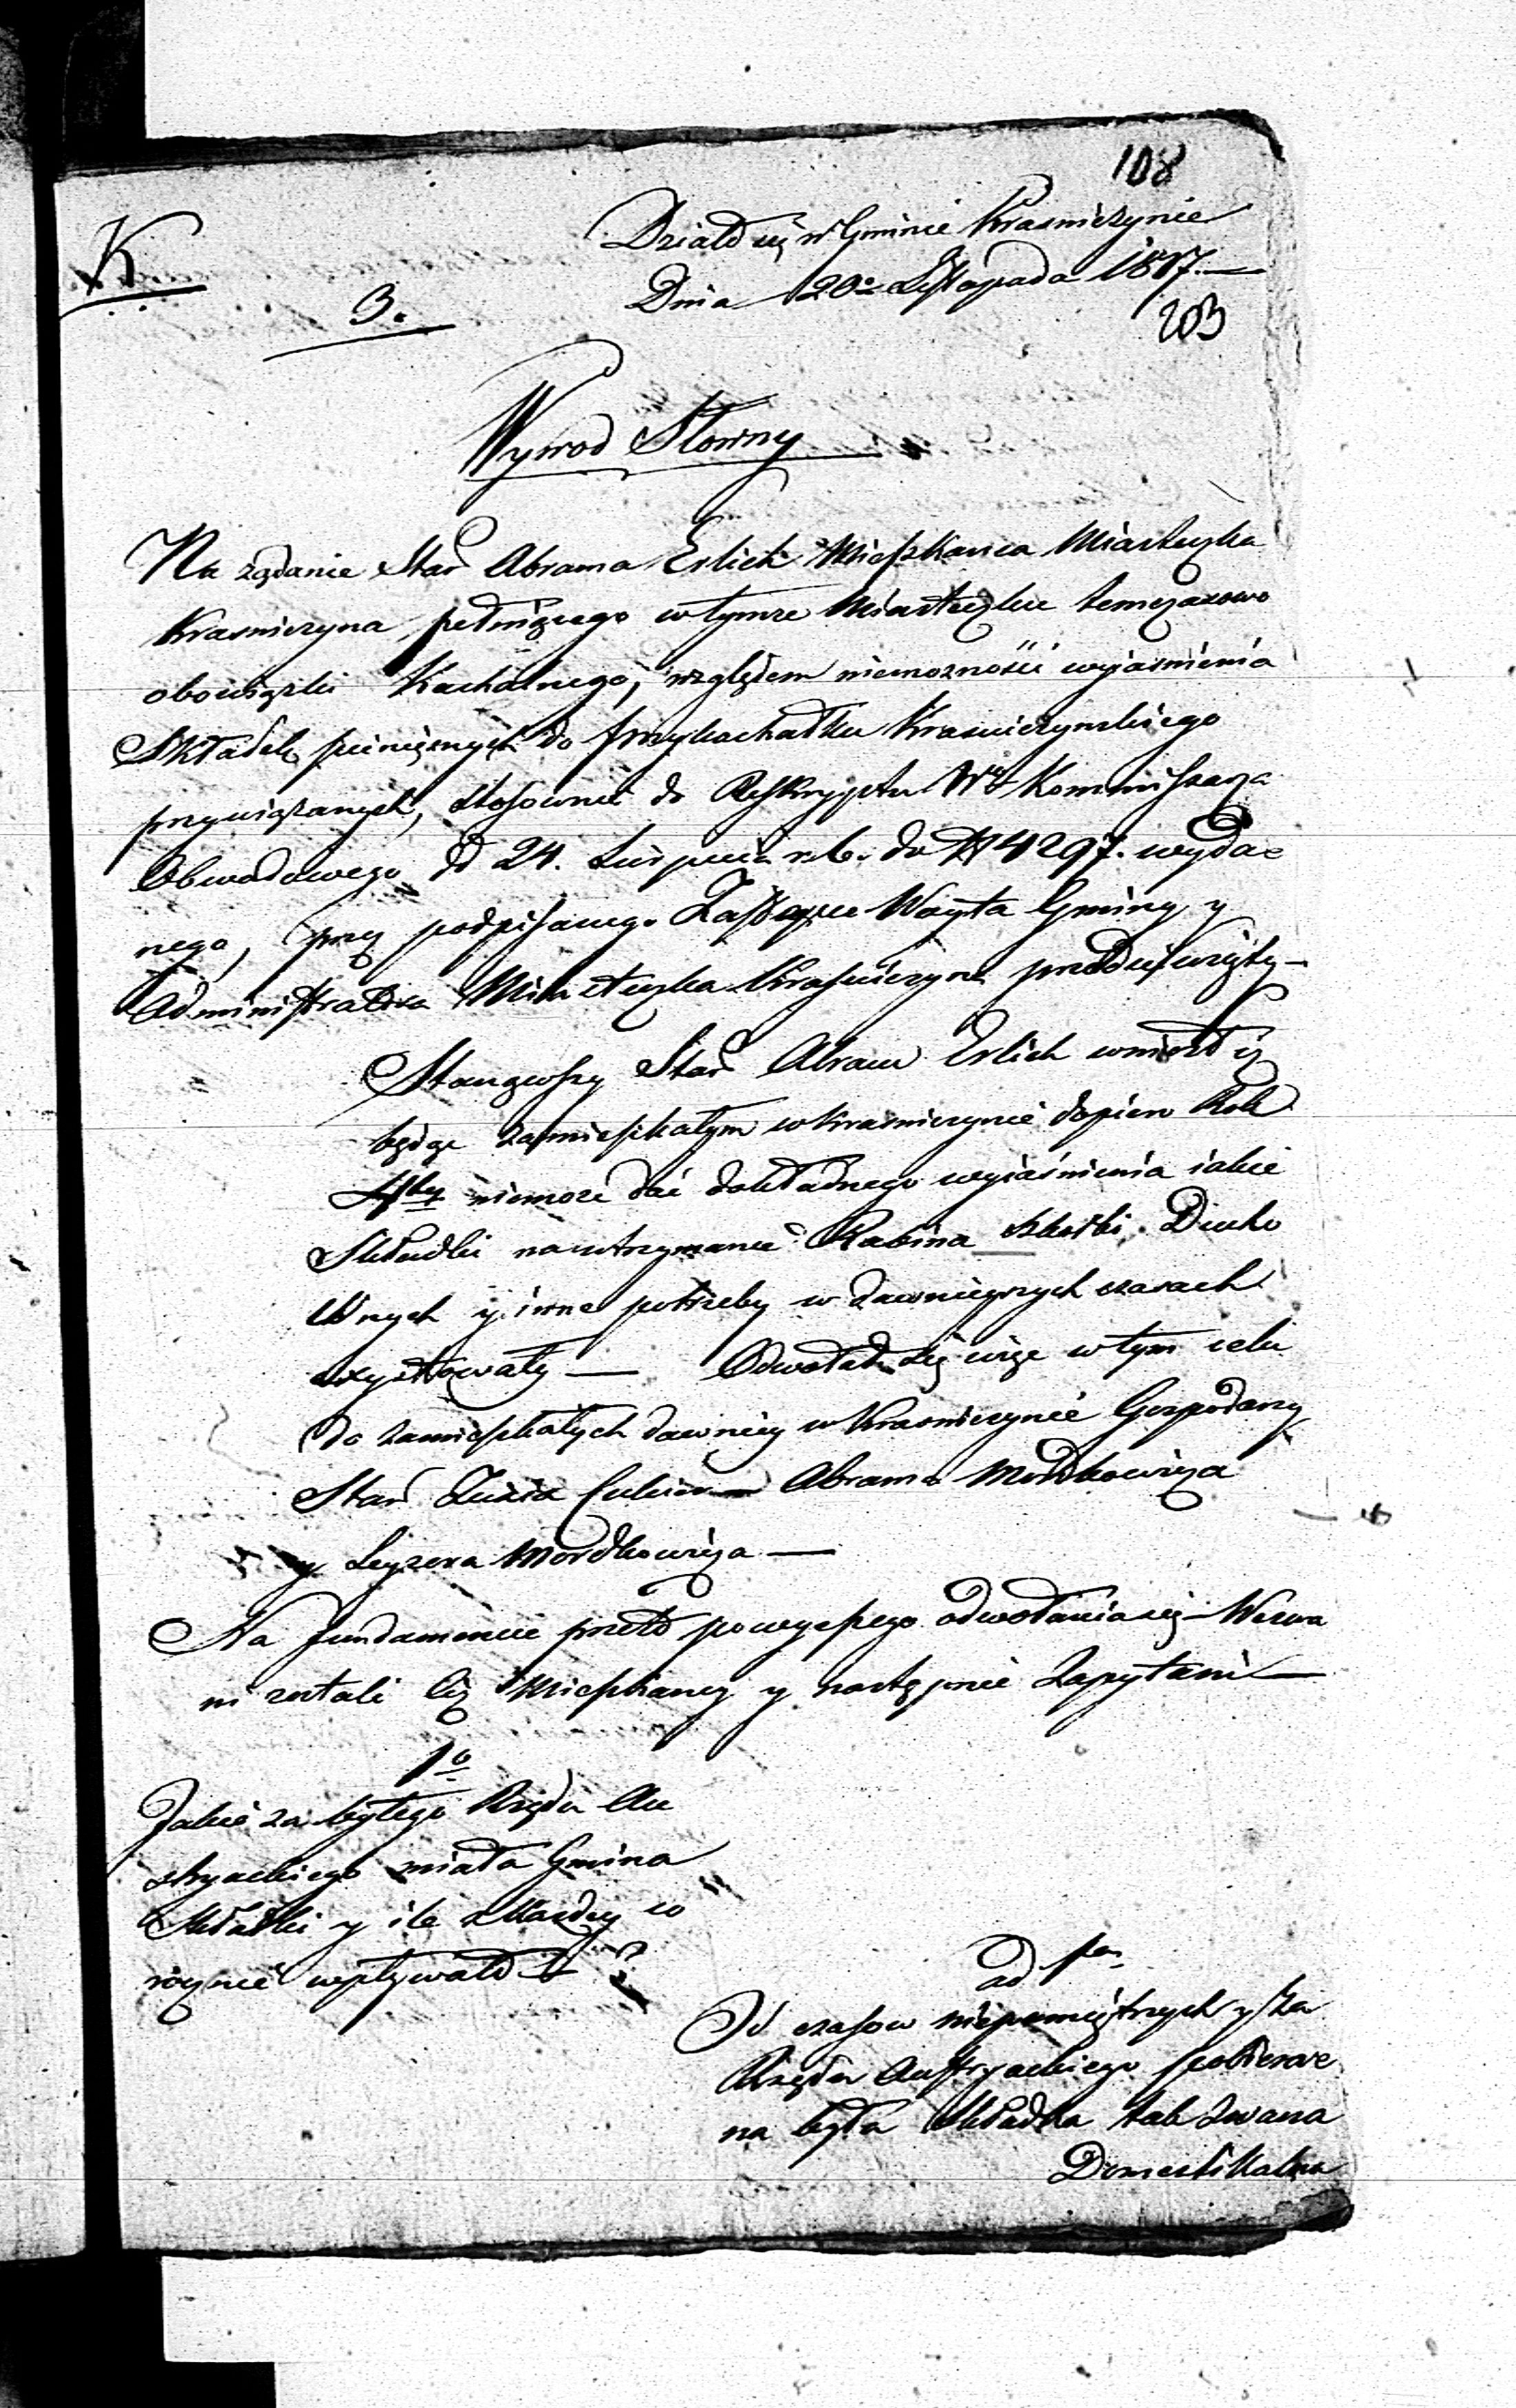 108
Działo się w Gminie Krasniczynie
K
Dnia 20º Listopada 1817.
3.
203
Wywod Słowny
Na żądanie Star Abrama Erlich Mieszkańca Miasteczka
Krasniczyna pełniącego w tymże Miasteczku temczasowo
obowiązki Kachalnego, względem niemożności wyjaśnienia
Składek pieniężnych do Przykachałku Krasniczynskiego
przywiązanych, stosownie do Reskryptu Wº Kommissarza
Obwodowego d 24. Sierpnia r. b. do N 4297. wyda=
nego, przez podpisanego Zastępce Woyta Gminy y
Administratora Miasteczka Krasniczyna przedsięwzięty—
Stanąwszy Star Abram Erlich wniosł iż
będąc zamieszkałym w Krasniczynie dopiero Rok
niemoże dać dokładnego wyiaśnienia iakie
Składki na utrzymanie Rabina szkołki Ducho
wnych y inne potrzeby w dawnieyszych czasach
exystowały — Odwołał się więc w tym celu
do zamieszkałych dawniey w Krasniczynie Gospodarzy
Star Abrama Mordkowicza
y Leyzera Mordkowicza —
Na fundamencie przeto powyższego odwołania się Wezwa
ni zostali ciż Mieszkancy y następnie Zapytani —
1º
Jakie za byłego Rządu Au
stryackiego miała Gmina
Składki y ile z każdey co
rocznie wpływało ?
ad 1m
Od czasow niepamiętnych y za
Rządu Austryackiego pobiera=
na była Składka tak zwana
Domestikalna